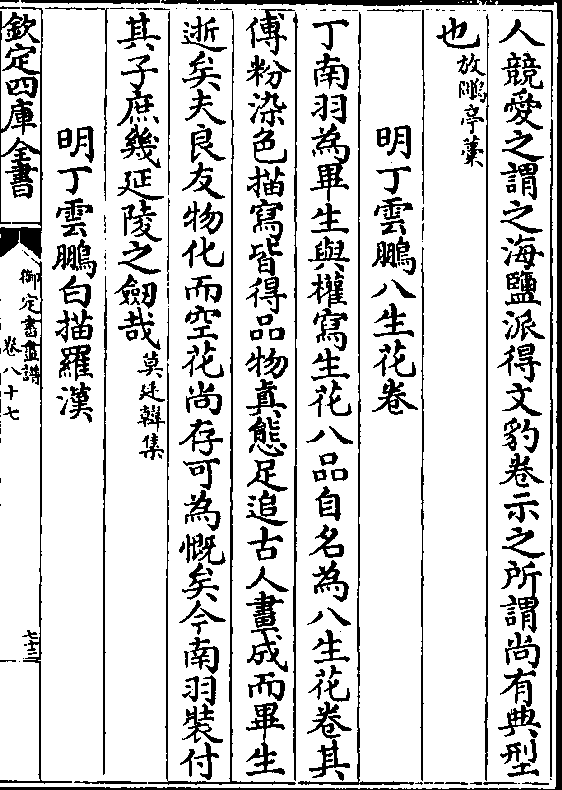 人競愛之謂之海鹽派得文豹卷示之所謂尚有典型
也放鷳亭藁
明丁雲鵬八生花卷
丁南羽為畢生與權寫生花八品自名為八生花卷其
傅粉染色描寫皆得品物真態足追古人畫成而畢生
逝矣夫良友物化而空花尚存可為慨矣今南羽裝付
其子庶幾延陵之劒哉莫廷韓集
明丁雲鵬白描羅漢
欽定四庫全書
御定書畫譜
卷八十七
七十三